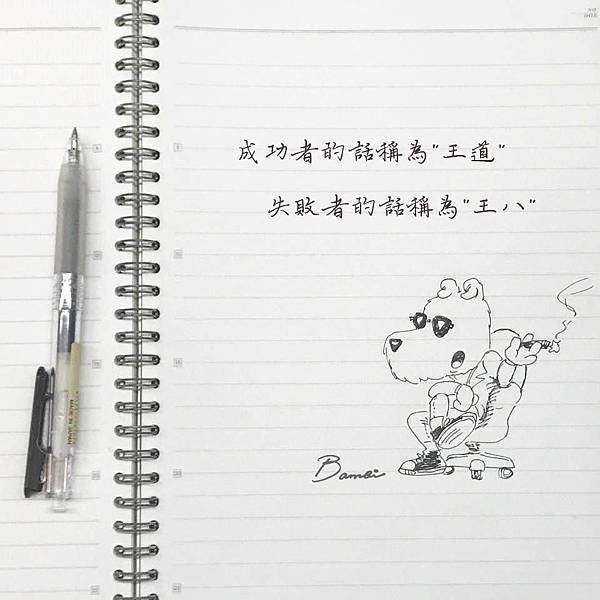 成功者的話稱為"王道"
失敗者的話稱為"王八"
Bambi